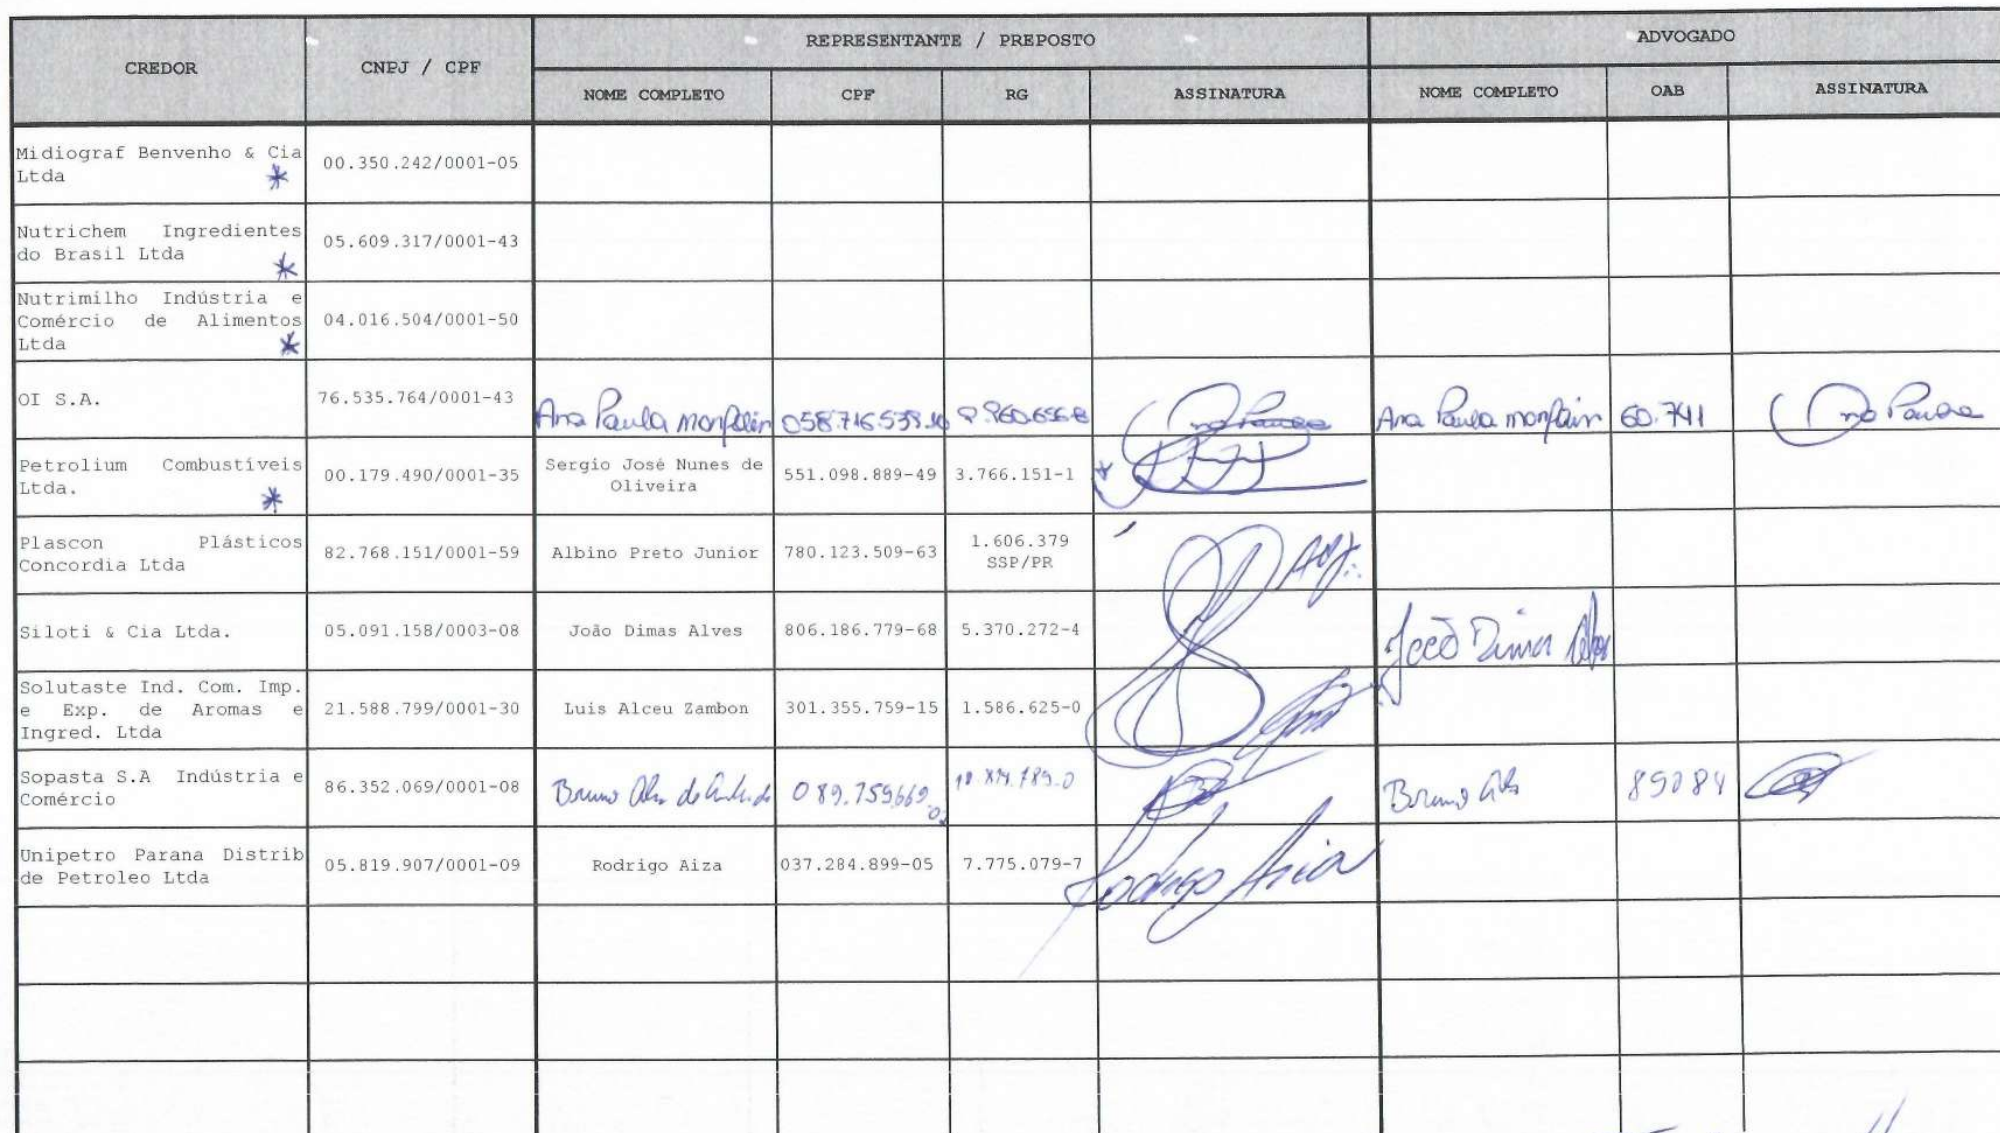 REPRESENTANTE / PREPOSTO
ADVOGADO
CREDOR
CNPJ / CPF
NOME COMPLETO
CPF
RG
ASSINATURA
NOME COMPLETO
OAB
ASSINATURA
Midiograf Benvenho & Cia
Ltda *
00.350.242/0001-05
Nutrichem Ingredientes
do Brasil Ltda *
05.609.317/0001-43
Nutrimilho Indústria e
Comércio de Alimentos
Ltda *
04.016.504/0001-50
OI S.A.
76.535.764/0001-43
Ana Paula
Ana Paula
60.741
Petrolium Combustíveis
Ltda. *
00.179.490/0001-35
Sergio José Nunes de
Oliveira
551.098.889-49
3.766.151-1
Plascon Plásticos
Concordia Ltda
82.768.151/0001-59
Albino Preto Junior
780.123.509-63
1.606.379
SSP/PR
Siloti & Cia Ltda.
05.091.158/0003-08
João Dimas Alves
806.186.779-68
5.370.272-4
João Dimas Alves
Solutaste Ind. Com. Imp.
e Exp. de Aromas e
Ingred. Ltda
21.588.799/0001-30
Luis Alceu Zambon
301.355.759-15
1.586.625-0
Sopasta S.A Indústria e
Comércio
86.352.069/0001-08
Bruno
Bruno
Unipetro Parana Distrib
de Petroleo Ltda
05.819.907/0001-09
Rodrigo Aiza
037.284.899-05
7.775.079-7
Rodrigo